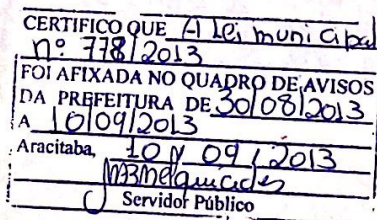 CERTIFICO QUE A lei municipal
nº 778/2013
FOI AFIXADA NO QUADRO DE AVISOS
DA PREFEITURA DE 30/08/2013
A 10/09/2013
Aracitaba, 10 / 09 / 2013
Servidor Público